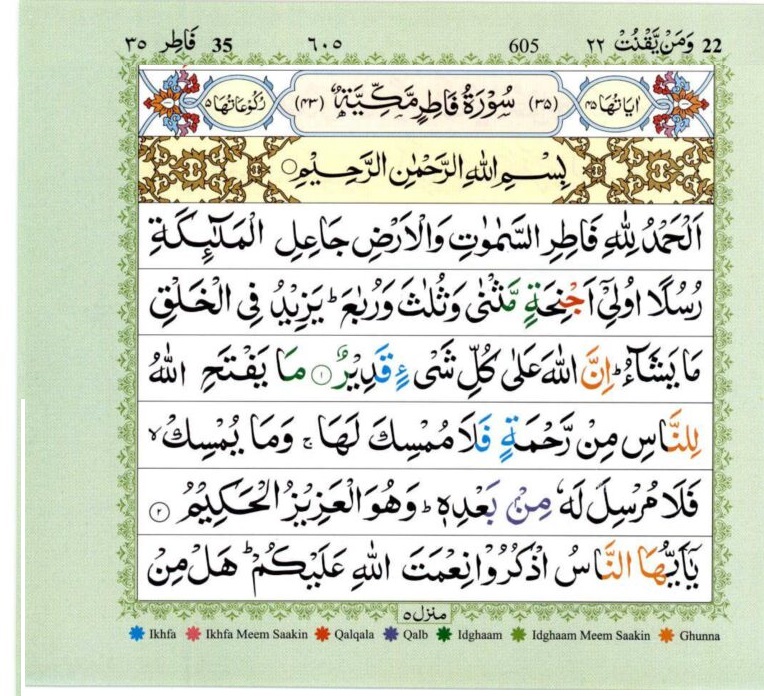 22 وَمَنْ يَّقْنُتْ ٢٢ 605 ٦٠٥ 35 فَاطِر ٣٥
اٰيَاتُهَا ٤٥ (٣٥) سُوْرَةُ فَاطِرٍ مَّكِّيَّةٌ (٤٣) رُكُوْعَاتُهَا ٥
بِسْمِ اللّٰهِ الرَّحْمٰنِ الرَّحِيْمِ
اَلْحَمْدُ لِلّٰهِ فَاطِرِ السَّمٰوٰتِ وَالْاَرْضِ جَاعِلِ الْمَلٰٓئِكَةِ
رُسُلًا اُولِيْٓ اَجْنِحَةٍ مَّثْنٰى وَثُلٰثَ وَرُبٰعَ ؕ يَزِيْدُ فِى الْخَلْقِ
مَا يَشَآءُ ؕ اِنَّ اللّٰهَ عَلٰى كُلِّ شَىْءٍ قَدِيْرٌ ١ مَا يَفْتَحِ اللّٰهُ
لِلنَّاسِ مِنْ رَّحْمَةٍ فَلَا مُمْسِكَ لَهَا ۚ وَمَا يُمْسِكْ ۙ
فَلَا مُرْسِلَ لَهٗ مِنْۢ بَعْدِهٖ ؕ وَهُوَ الْعَزِيْزُ الْحَكِيْمُ ٢
يٰٓاَيُّهَا النَّاسُ اذْكُرُوْا نِعْمَتَ اللّٰهِ عَلَيْكُمْ ؕ هَلْ مِنْ
منزل ٥
Ikhfa Ikhfa Meem Saakin Qalqala Qalb Idghaam Idghaam Meem Saakin Ghunna